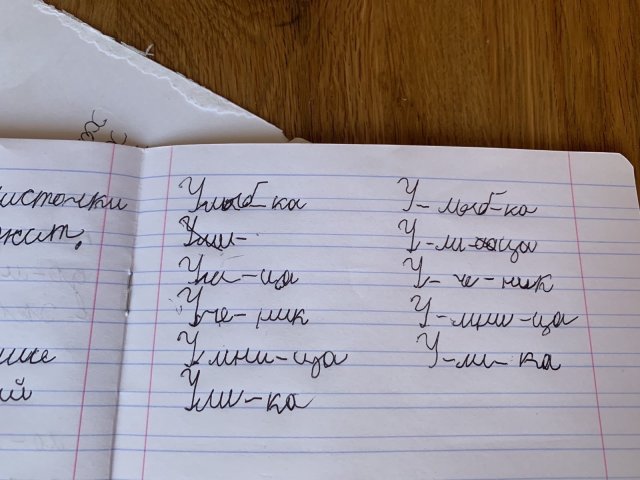 источки
жит,
шке
ий
Улыб-ка
Ули-
Ули-ца
Уче-ник
Умни-ца
Ули-ка
У-лыб-ка
У-ли-ца
У-че-ник
У-мни-ца
У-ли-ка